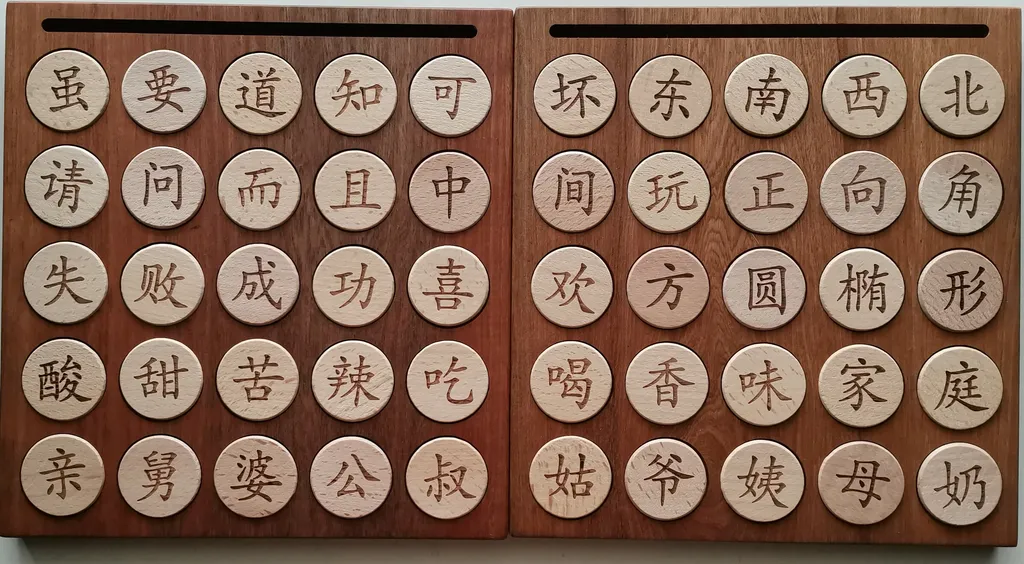 虽要道知可坏东南西北
请问而且中间玩正向角
失败成功喜欢方圆椭形
酸甜苦辣吃喝香味家庭
亲舅婆公叔姑爷姨母奶